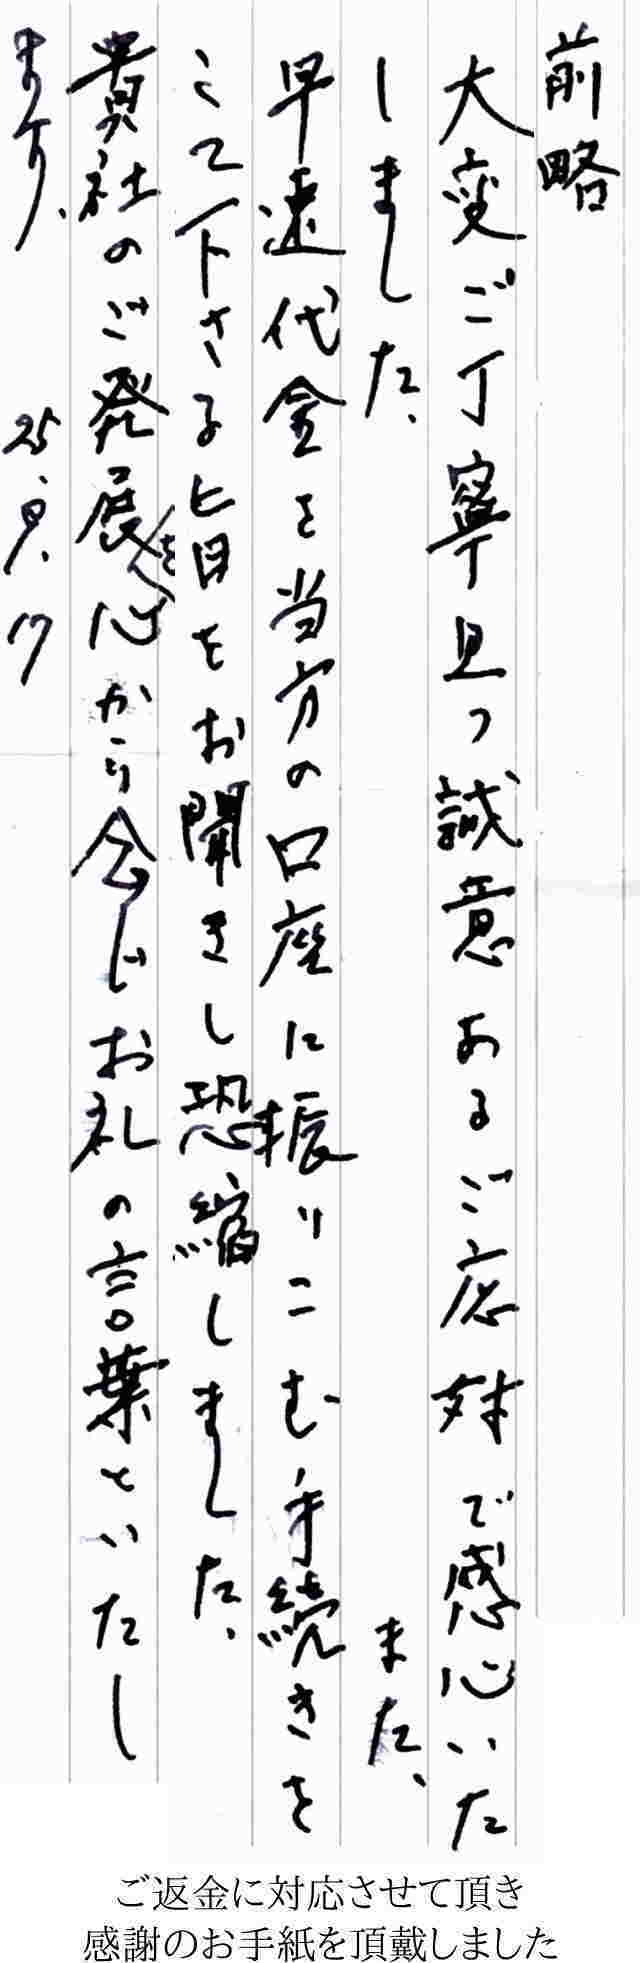 前略
大変ご丁寧且つ誠意あるご応対で感心いた
しました、また、
早速代金を当方の口座に振りこむ手続きを
して下さる旨をお聞きし恐縮しました、
貴社のご発展を心から念じお礼の言葉といたし
ます、 25、9、17
ご返金に対応させて頂き
感謝のお手紙を頂戴しました